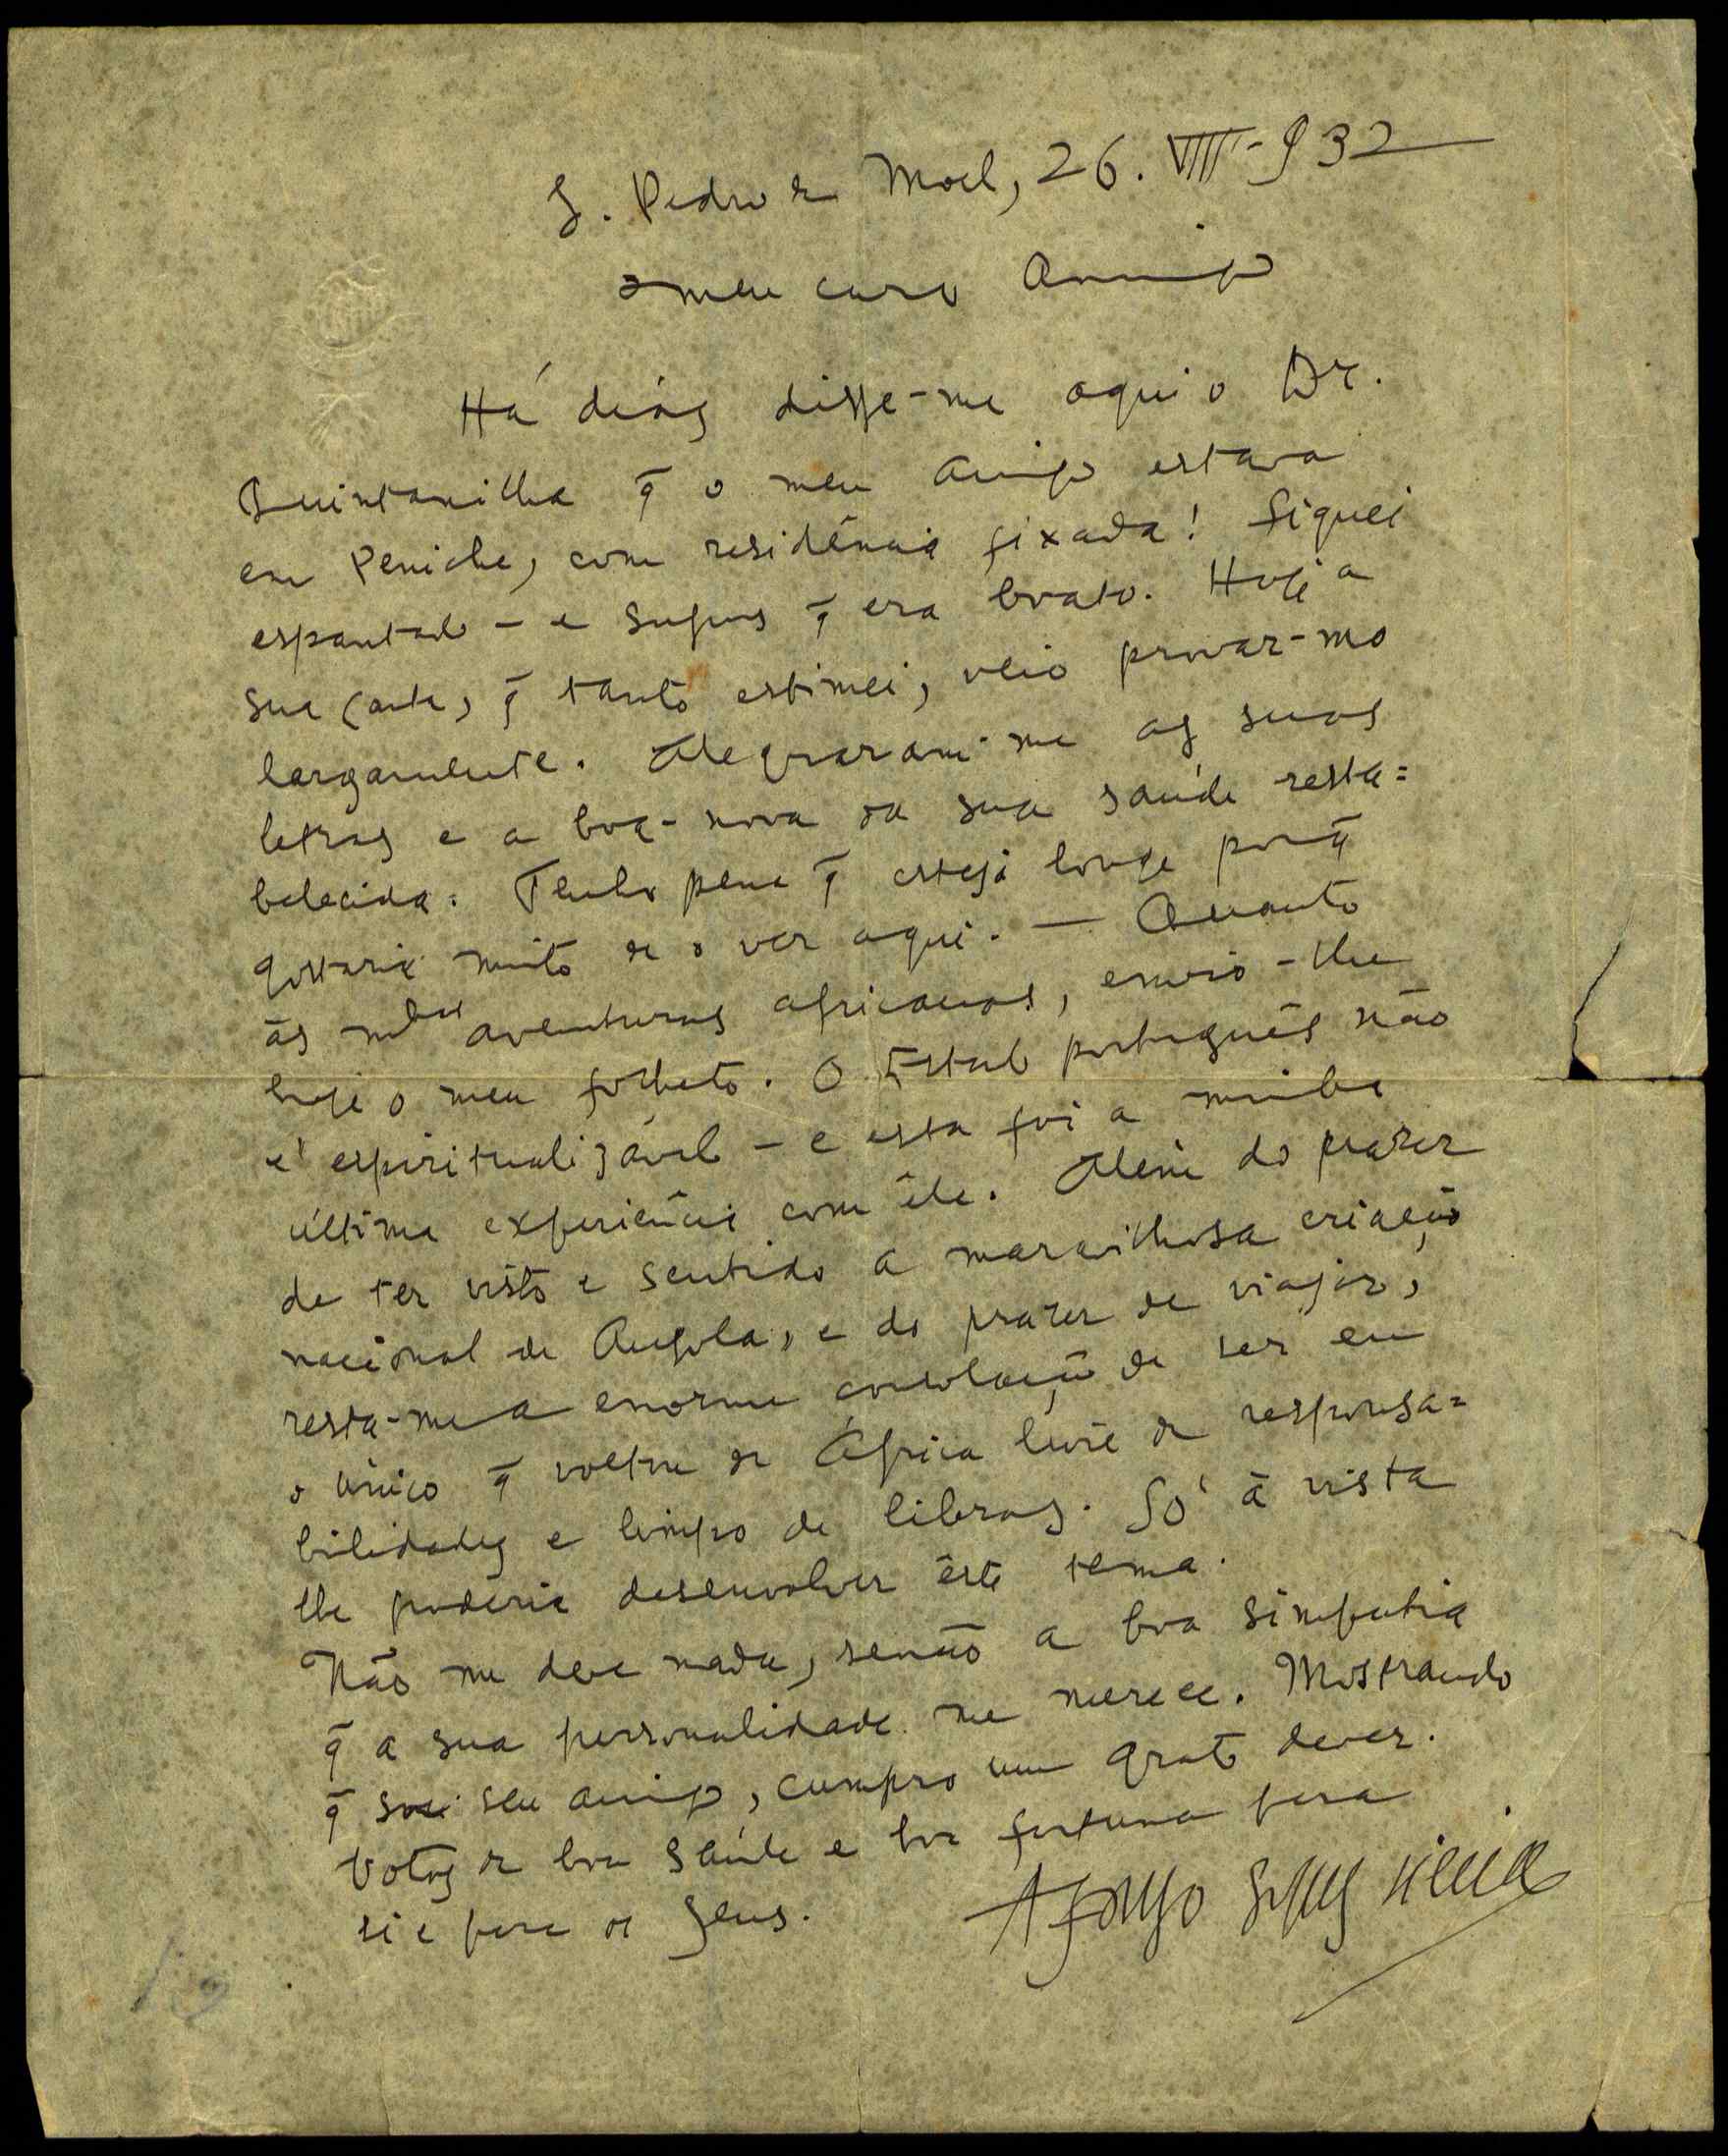 S. Pedro de Moel, 26. VIII-932
meu caro Amigo
Há dias disse-me aqui o Dr.
Quintanilha q̃ o meu Amigo estava
em Peniche, com residência fixada! Fiquei
espantado - e supus q̃ era boato. Hoje a
sua carta, q̃ tanto estimei, veio provar-mo
largamente. Alegraram-me as suas
letras e a boa-nova da sua saúde resta=
belecida. Tenho pena q̃ esteja longe porq̃
gostaria muito de o ver aqui. — Quanto
às mas aventuras africanas, envio-lhe
hoje o meu folheto. O Estado português não
é espiritualizável - e esta foi a minha
última experiência com êle. Além do prazer
de ter visto e sentido a maravilhosa criação
nacional de Angola, e do prazer de viajar,
resta-me a enorme consolação de ser eu
o único q̃ voltou de África livre de responsa=
bilidades e limpo de libras. Só à vista
lhe poderia desenvolver êste tema.
Não me deve nada, senão a boa simpatia
q̃ a sua personalidade me merece. Mostrando
q̃ sou seu amigo, cumpro um grato dever.
Votos de boa saúde e boa fortuna para
si e para os seus.
Afonso Lopes Vieira